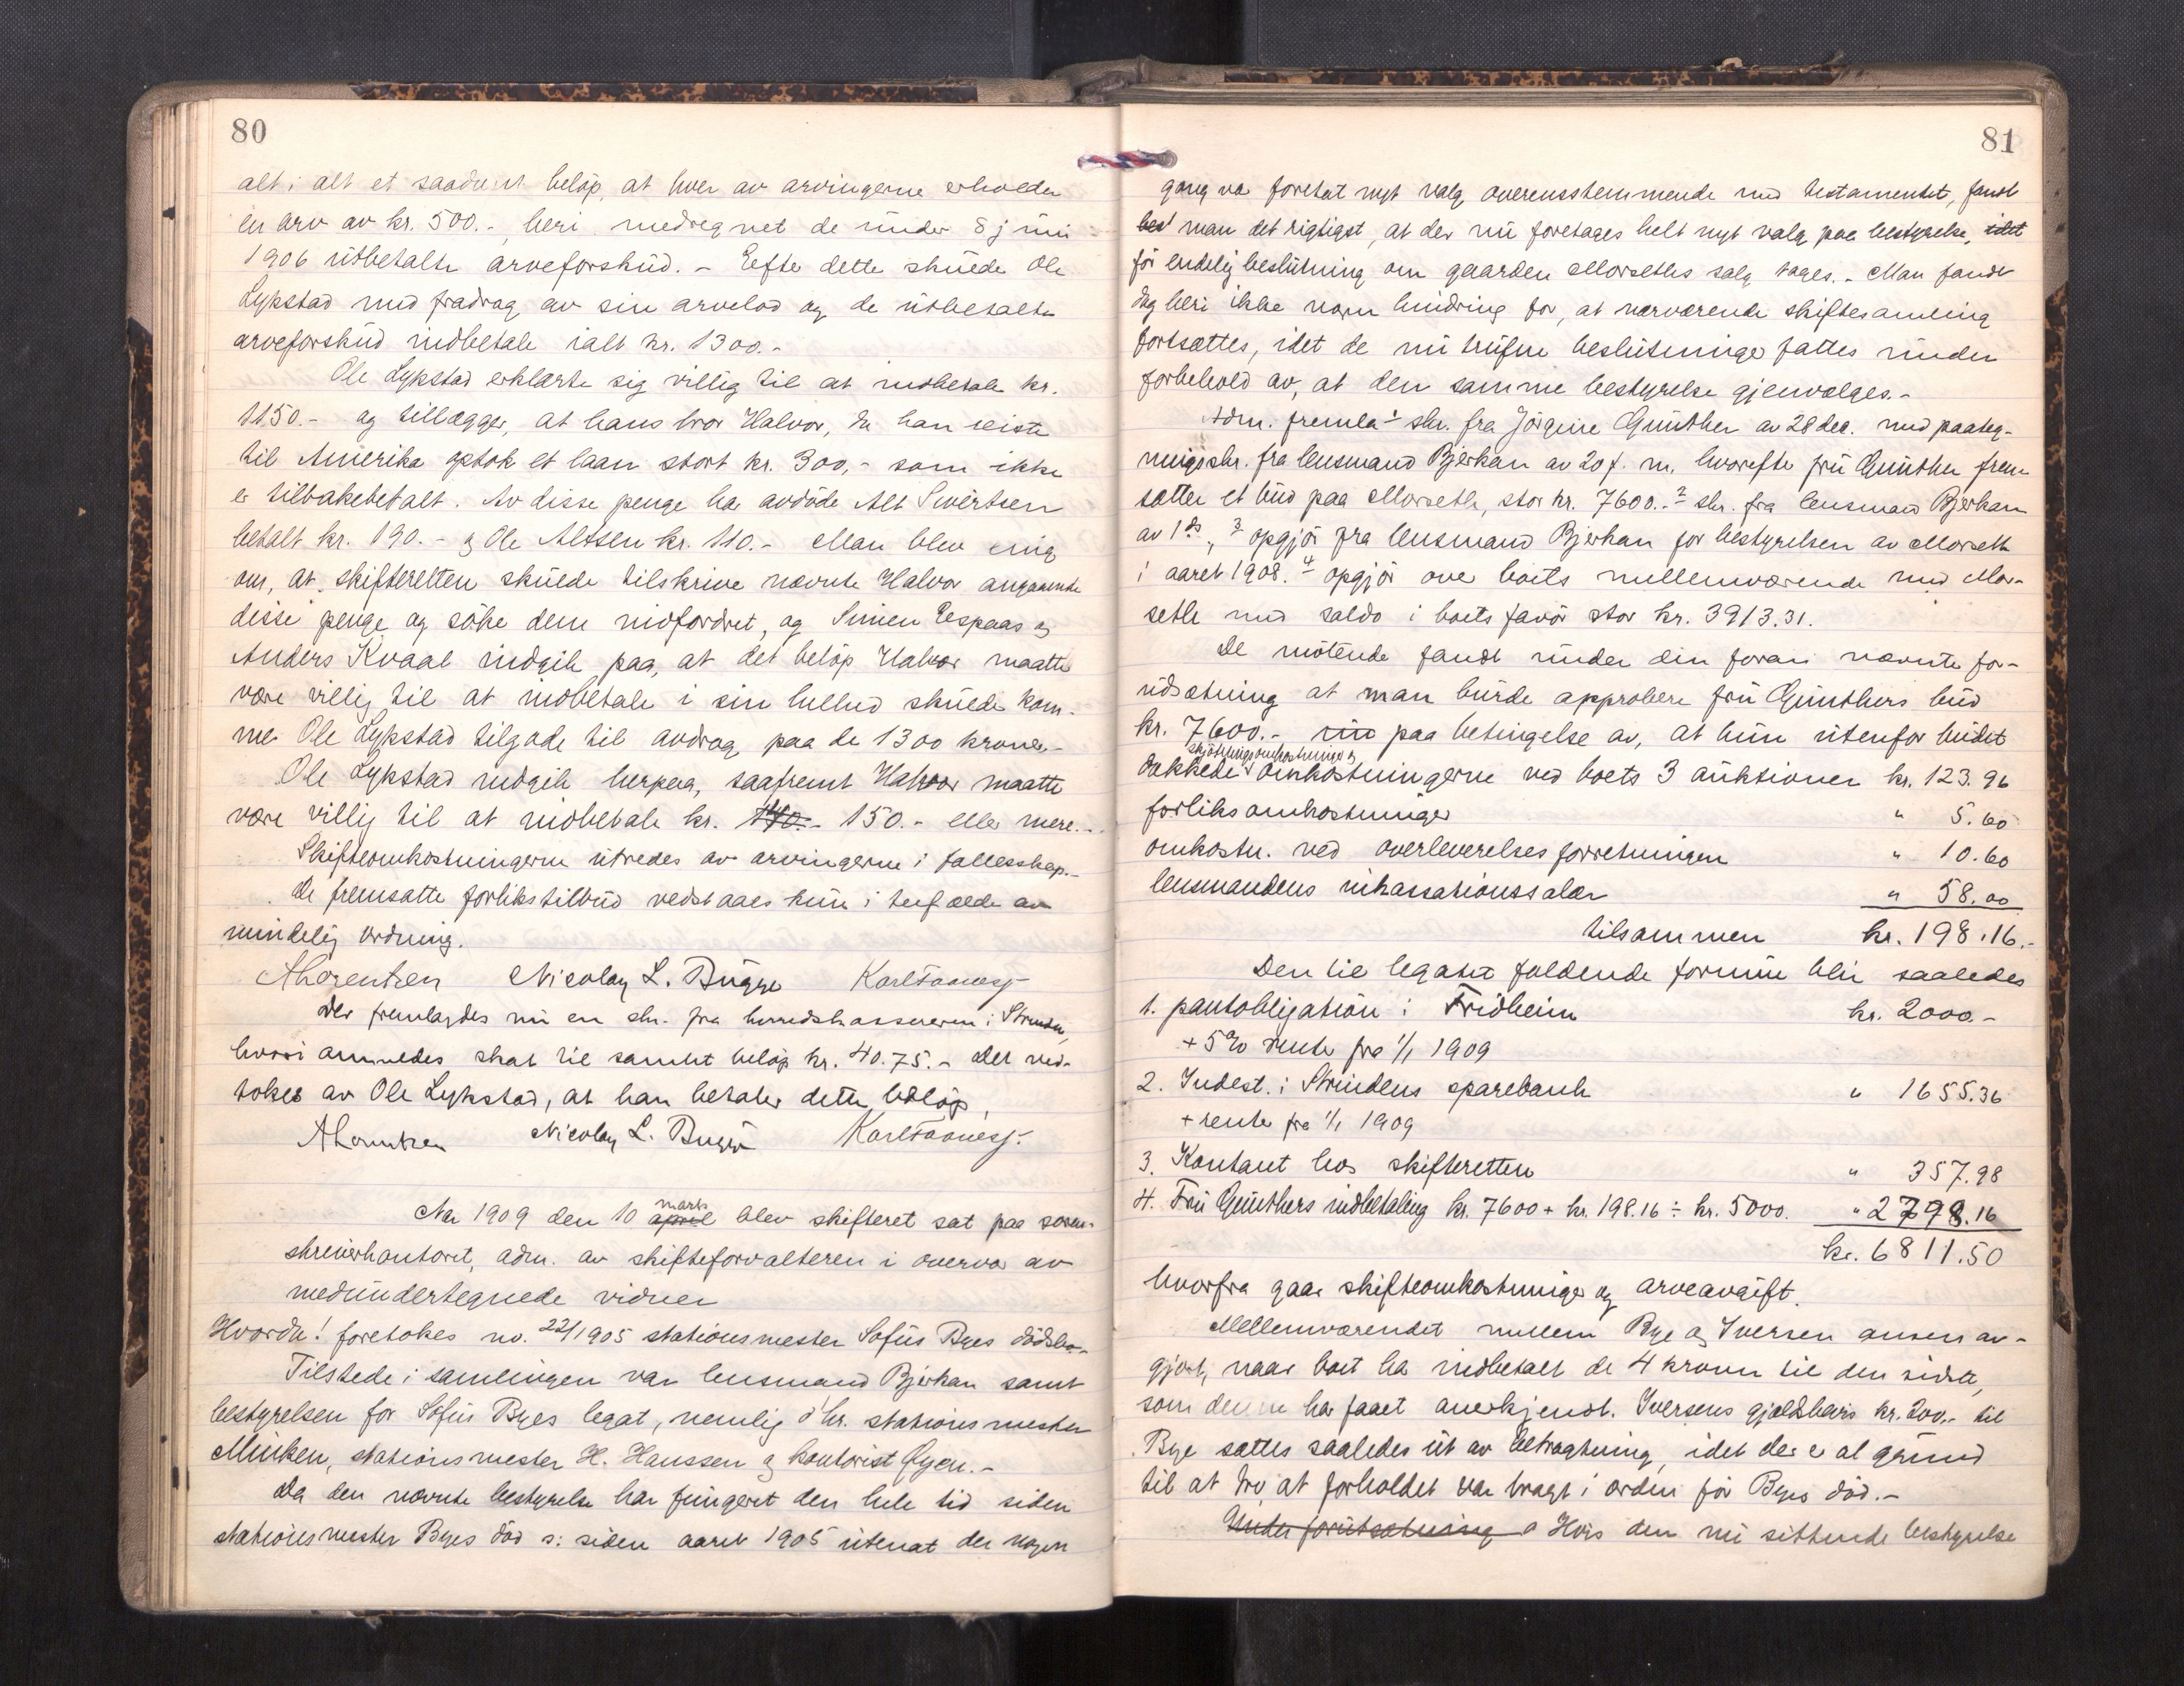 80
alt i alt et saadant beløp, at hver av arvingerne erholder
en arv av kr. 500.-, heri medregnet de under 8 juni
1906 utbetalte arveforskud. - Efter dette skulde Ole
Lykstad med fradrag av sin arvelod og de utbetalte
arveforskud indbetale ialt kr. 1300.-
Ole Lykstad erklærte sig villig til at indbetale kr.
1150.- og tillægger, at hans bror Halvor, da han reiste
til Amerika optok et laan stort kr. 300,- som ikke
er tilbakebetalt. Av disse penge har avdøde Alt Sivertsen
betalt kr. 190.- og Ole Altsen kr. 110.- Man blev enig
om, at skifteretten skulde tilskrive nævnte Halvor angaaende
disse penge og søke dem indfordret, og Simen Espaas og
Anders Kvaal indgik paa, at det beløp Halvor maatte
være villig til at indbetale i sin helhed skulde kom-
me Ole Lykstad tilgode til avdrag paa de 1300 kroner.-
Ole Lykstad indgik herpaa, saafremt Halvor maatte
være villig til at indbetale kr. 140.- 150.- eller mere.-
Skifteomkostningerne utredes av arvingerne i fællesskap.-
De fremsatte forlikstilbud vedstaaes kun i tilfælde av
mindelig ordning.
ALorentzen Nicolay L. Bugge Karl Faanes
Der fremlagdes nu en skr. fra herredskassereren i Strinden,
hvori anmeldes skat til samlet beløp kr. 40.75.- Det ved-
tokes av Ole Lykstad, at han betaler dette beløp,
ALorentzen Nicolay L. Bugge Karl Faanes
mars
Aar 1909 den 10 april blev skifteret sat paa soren-
skriverkontoret, adm. av skifteforvalteren i overvær av
medundertegnede vidner
Hvorda! foretokes no. 22/1905 stationsmester Sofus Byes dødsbo-
Tilstede i samlingen var lensmand Bjerkan samt
bestyrelsen for Sofus Byes legat, nemlig d'hr. stationsmester
Minken, stationsmester H. Hanssen og kontorist Øyen.-
Da den nævnte bestyrelse har fungeret den hele tid siden
stationsmester Byes død s: siden aaret 1905 utenat der nogen
81
gang var foretat nyt valg overensstemmende med testamentet, fandt
man det rigtigst, at der nu foretages helt nyt valg paa bestyrelse, idet
før endelig beslutning om gaarden Morseths salg tages.- Man fandt
dog heri ikke nogen hindring for, at nærværende skiftesamling
fortsættes, idet de nu trufne beslutninger fattes under
forbehold av, at den samme bestyrelse gjenvælges.-
Adm. fremla 1 skr. fra Jörgine Günther av 28 dec. med paateg-
ningsskr. fra lensmand Bjerkan av 20 f. m, hvorefter fru Günther frem
sætter et bud paa Morseth, stor kr. 7600.- 2 skr. fra lensmand Bjerkan
av 1 ds, 3 opgjør fra lensmand Bjerkan for bestyrelsen av Morseth
i aaret 1908. 4 opgjør over boets mellemværende med Mor-
seth med saldo i boets favør stor kr. 3913.31.
De møtende fandt under den foran nævnte for-
udsætning at man burde approbere fru Günthers bud
kr. 7600.- paa betingelse av, at hun utenfor budet
skjötningsomkostninger
dækkede omkostningerne ved boets 3 auktioner kr. 123.96
forliksomkostninger " 5.60
omkostn. ved overleverelsesforretningen " 10.60
lensmandens inkassationssalær " 58.00
tilsammen kr. 198.16.-
Den til legatet faldende formue blir saaledes
1. pantobligation i Fridheim kr. 2000.-
+ 5% rente fra 1/1 1909
2. Indest. i Strindens sparebank " 1655.36
+ rente fra 1/1 1909
3. Kontant hos skifteretten " 357.98
4. Fru Günthers indbetaling kr. 7600 + kr. 198.16 ÷ kr. 5000. " 2798.16
kr. 6811.50
hvorfra gaar skifteomkostninger og arveavgift.
Mellemværendet mellem Bye og Iversen ansees av-
gjort, naar boet har indbetalt de 4 kroner til den sidste,
som denne har faaet anerkjendt. Iversens gjældsbevis kr. 200.- til
Bye sættes saaledes ut av betragtning, idet der er al grund
til at tro, at forholdet var bragt i orden før Byes død.-
Under forutsætning a Hvis den nu sittende bestyrelse